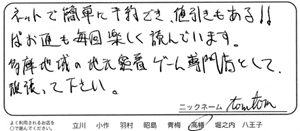 ネットで簡単に予約でき、値引きもある!!
ばお通も毎回楽しく読んでいます。
多摩地域の地元密着ゲーム専門店として、
頑張って下さい。
ニックネーム tomtom
よく利用されるお店を
○で囲んでください。
立川 小作 羽村 昭島 青梅 高幡 堀之内 八王子